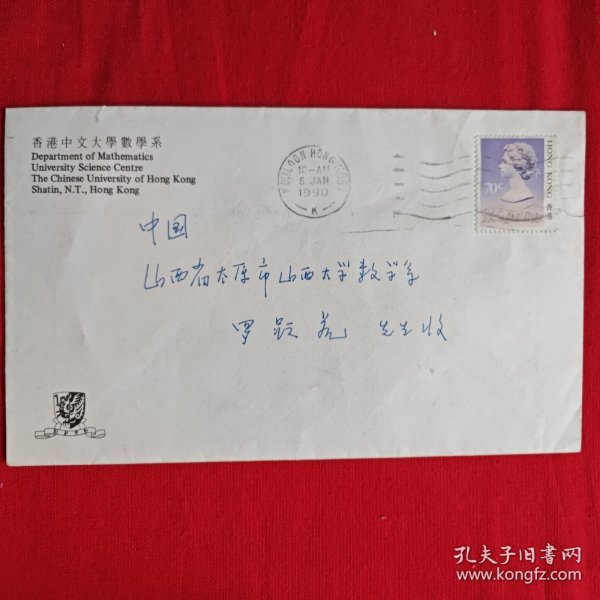 香港中文大學數學系
Department of Mathematics
University Science Centre
The Chinese University of Hong Kong
Shatin, N.T., Hong Kong
KOWLOON HONG KONG
10-AM
5 JAN
1990
K
70c
HONG KONG 香港
中国
山西省太原市山西大学数学系
罗跃 先生收
孔夫子旧书网
www.kongfz.com